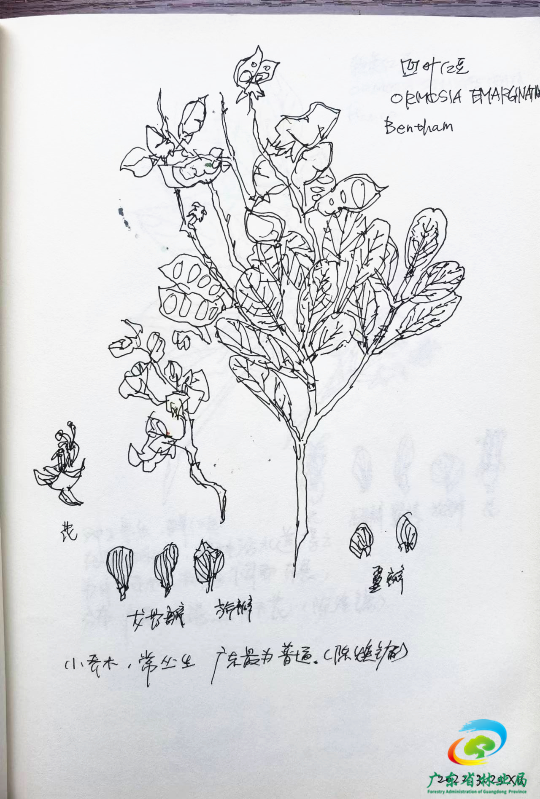 凹叶红豆
ORMOSIA EMARGINATA
Bentham
花
龙骨瓣
旗瓣
翼瓣
小乔木，常丛生 广东最为普遍。(陈焕镛)
广东省林业局
Forestry Administration of Guangdong Province